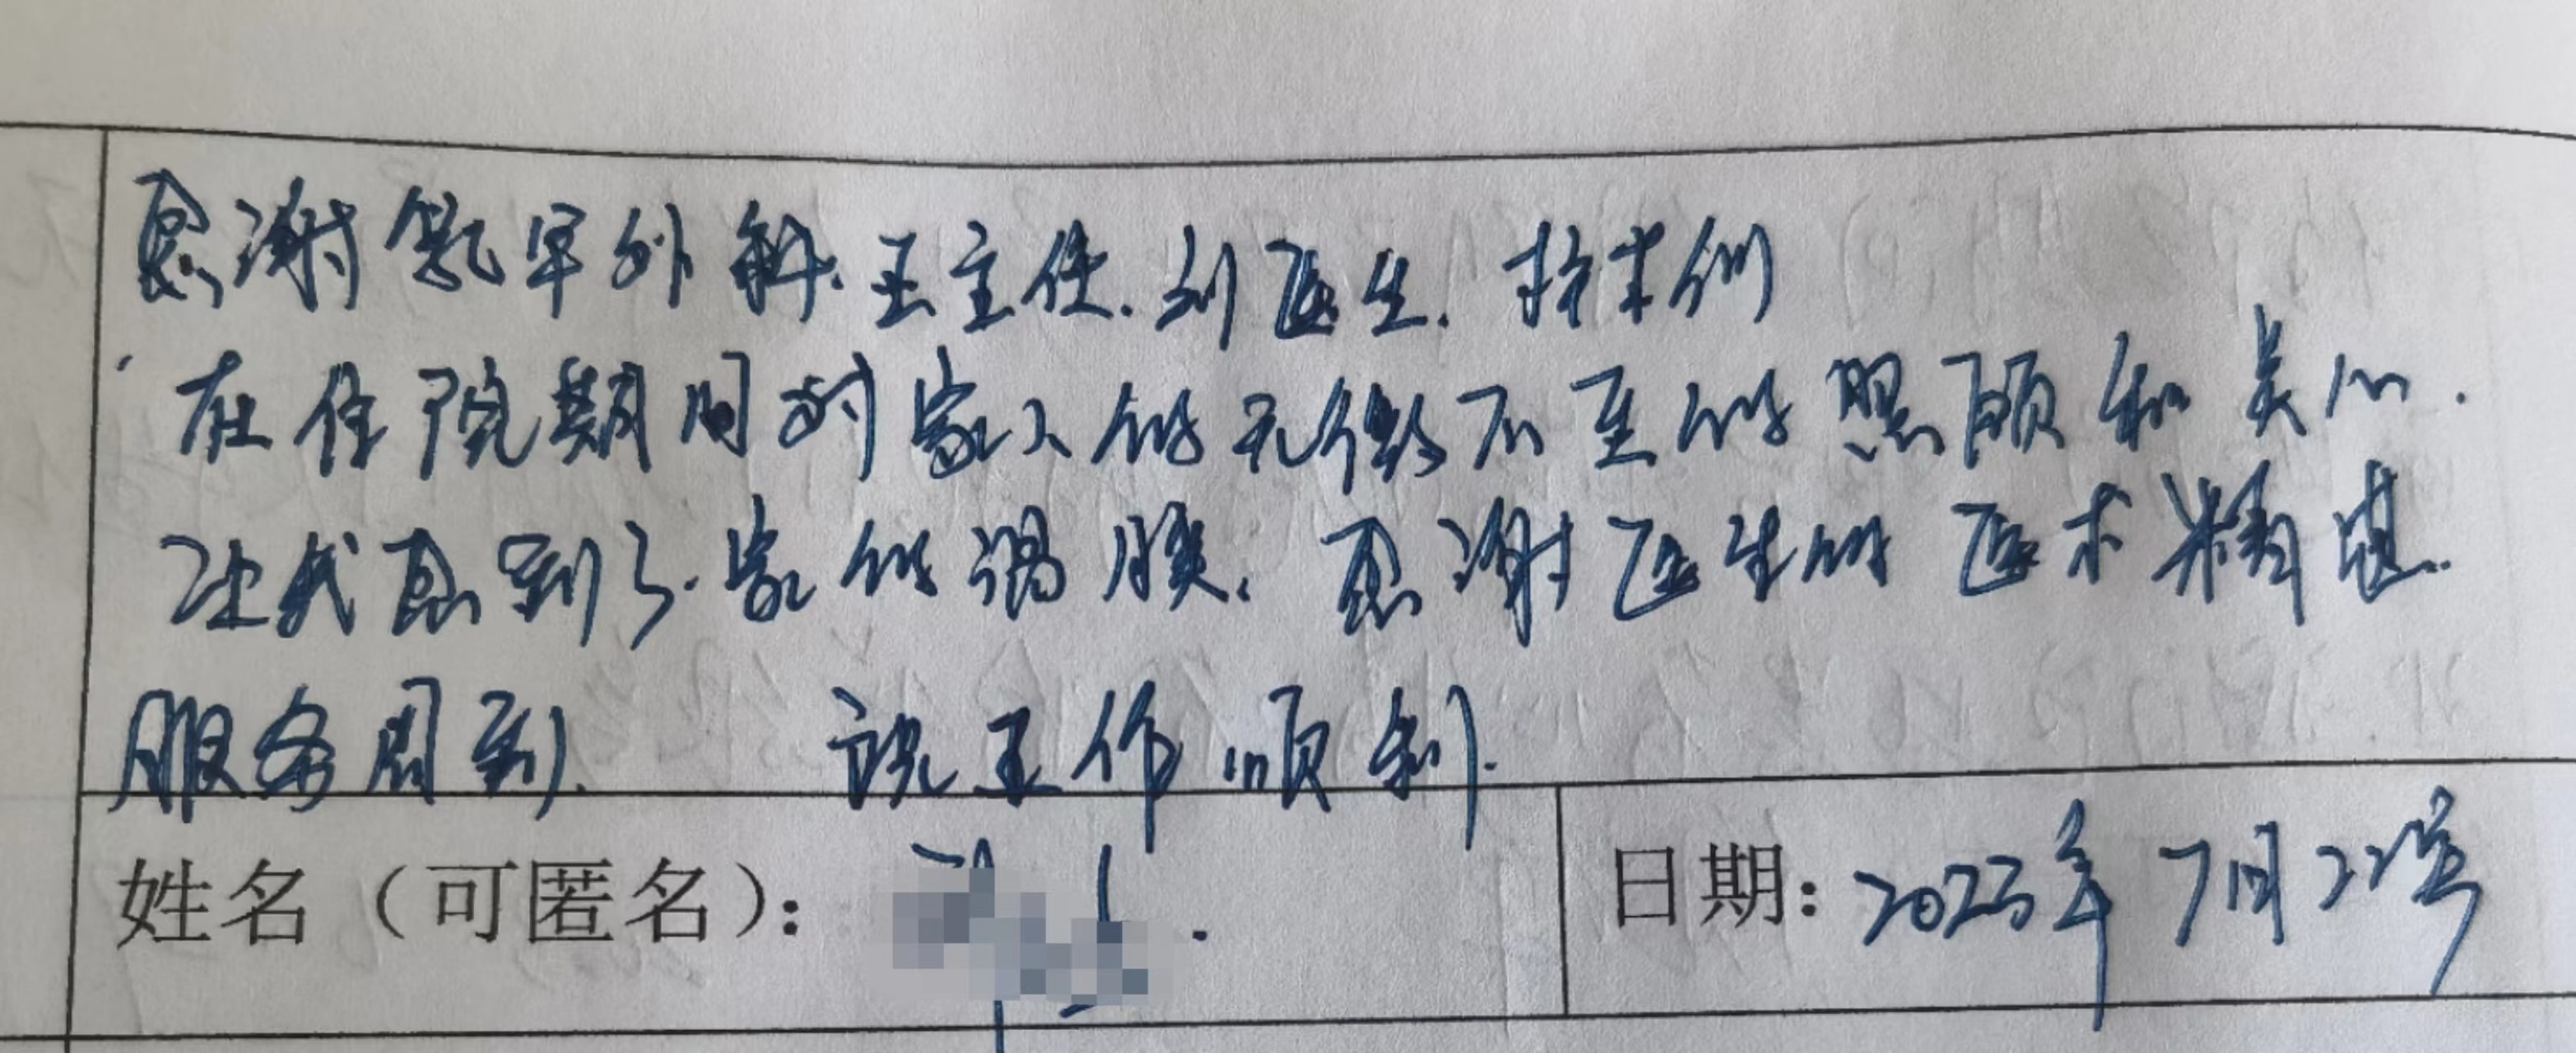 感谢氩气外科.王主任.刘医生.护士们
在住院期间对家人的无微不至的照顾和关心.
让我感到了.家的温暖.感谢医生的医术精堪.
服务周到. 祝工作顺利.
姓名（可匿名）:
日期: 2023年7月22号